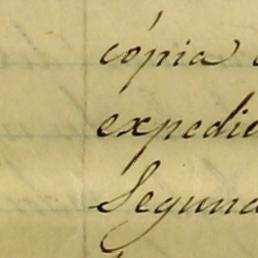 cópia
expedie
Segund